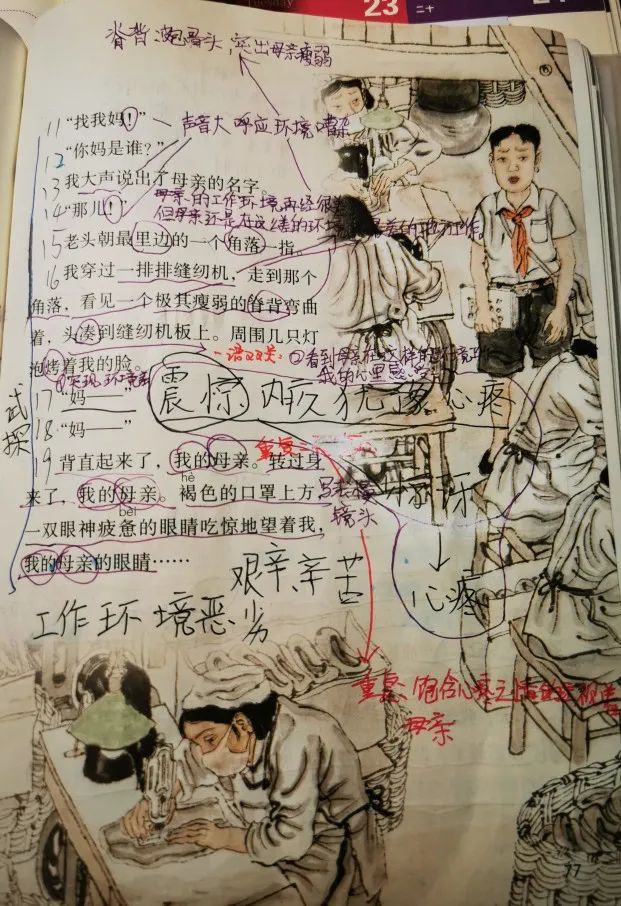 Tuesday
23
二十
脊背:跑骨头,突出母亲瘦弱
11 “找我妈!” — 声音大 呼应环境嘈杂
12 “你妈是谁?”
13 我大声说出了母亲的名字。
母亲的工作环境再经很差
14 “那儿!”
但母亲还是在这么差的环境
工作
15 老头朝最里边的一个角落一指。
16 我穿过一排排缝纫机,走到那个
角落,看见一个极其瘦弱的脊背弯曲
着,头凑到缝纫机板上。周围几只灯
泡烤着我的脸。
一语双关:
①实现环境差
②看到母亲在这样的环境工作
我的心里
震惊 内疚 犹豫 心疼
式探
17 “妈——”
18 “妈——”
重复
19 背直起来了,我的母亲。转过身
hè
来了,我的母亲。褐色的口罩上方
bèi
一双眼神疲惫的眼睛吃惊地望着我,
我的母亲的眼睛……
镜头
心疼
艰辛、辛苦
工作环境恶劣
重复 饱含心疼之情
母亲
77